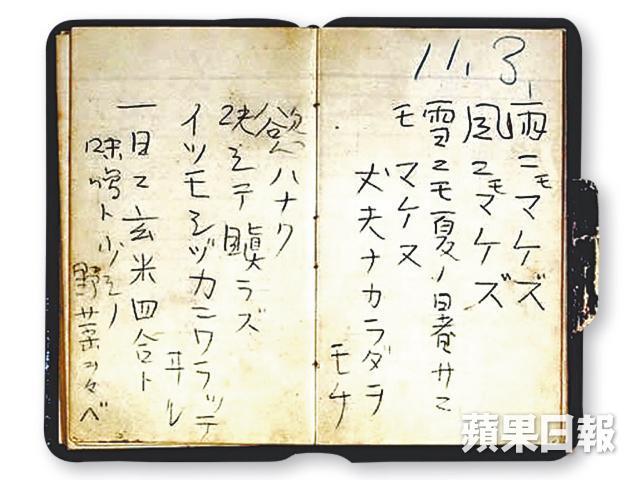 11.3.
雨ニモマケズ
風ニモマケズ
雪ニモ夏ノ暑サニ
モ マケヌ
丈夫ナカラダヲ
モチ
慾ハナク
決シテ瞋ラズ
イツモシヅカニワラッテ
ヰル
一日ニ玄米四合ト
味噌ト少シノ
野菜ヲタベ
蘋果日報